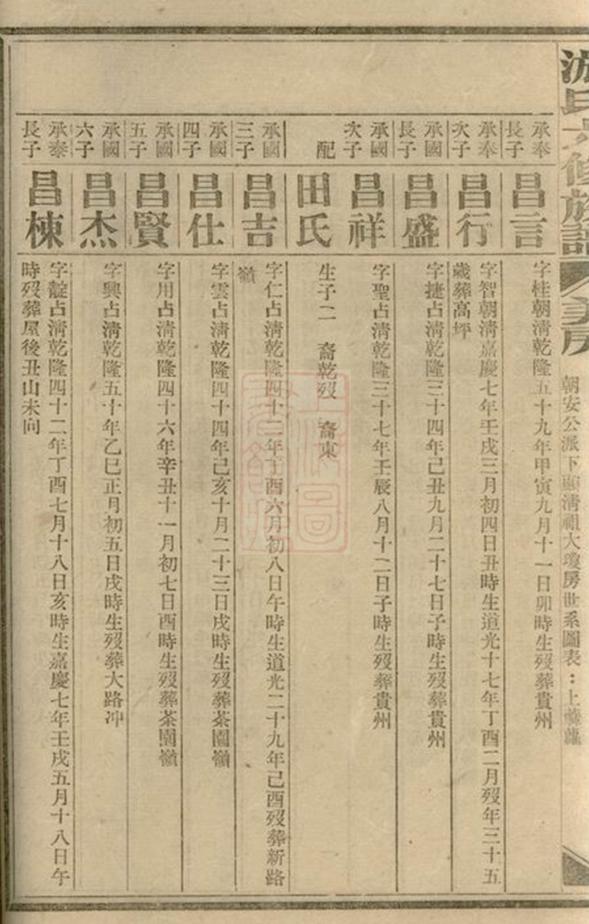 游氏六修族譜
美房
朝安公派下顯清祖大瓊房世系圖表：上
承奉長子
昌言
字桂朝清乾隆五十九年甲寅九月十一日卯時生歿葬貴州
承奉次子
昌行
字智朝清嘉慶七年壬戌三月初四日丑時生道光十七年丁酉二月歿年三十五
歲葬高坪
承國長子
昌盛
字捷占清乾隆三十四年己丑九月二十七日子時生歿葬貴州
承國次子
昌祥
字聖占清乾隆三十七年壬辰八月十二日子時生歿葬貴州
配
田氏
生子二　裔乾歿　裔東
承國三子
昌吉
字仁占清乾隆四十二年丁酉六月初八日午時生道光二十九年己酉歿葬新路
嶺
承國四子
昌仕
字雲占清乾隆四十四年己亥十月二十三日戌時生歿葬茶園嶺
承國五子
昌賢
字用占清乾隆四十六年辛丑十一月初七日酉時生歿葬茶園嶺
承國六子
昌杰
字興占清乾隆五十年乙巳正月初五日戌時生歿葬大路冲
承泰長子
昌棟
字靛占清乾隆四十二年丁酉七月十八日亥時生嘉慶七年壬戌五月十八日午
時歿葬屋後丑山未向